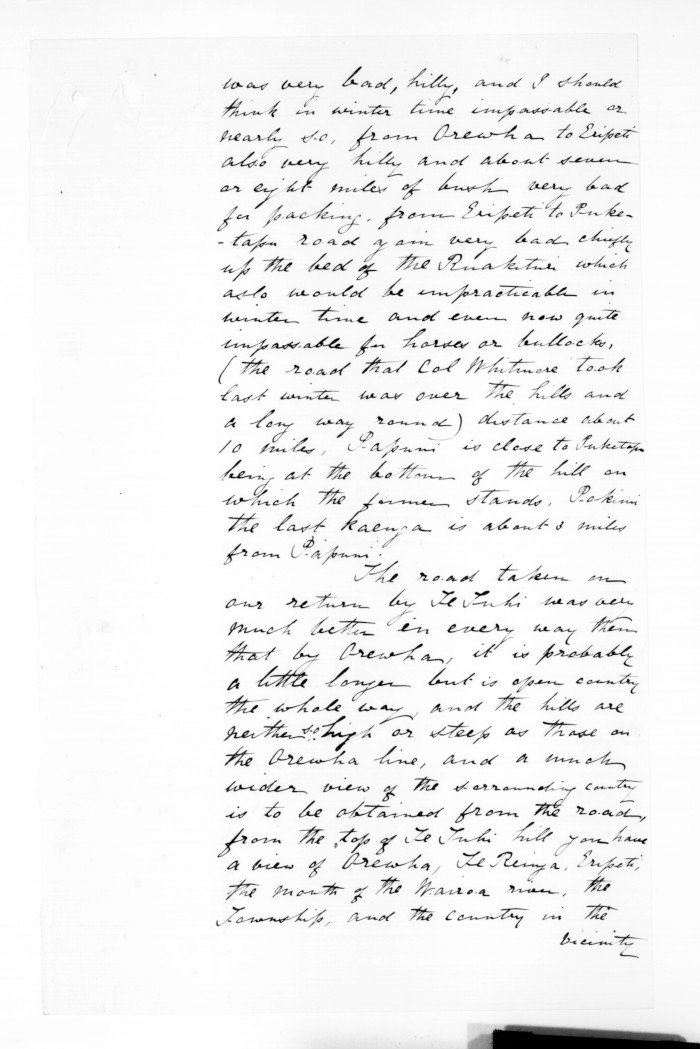 was very bad, hilly, and I should
think in winter time impassable or
nearly so, from Orewha to Eripeti
also very hilly and about seven
or eight miles of bush very bad
for packing. from Eripeti to Puke-
-tapu road again very bad chiefly
up the bed of the Ruakituri which
aslo would be impracticable in
winter time and even now quite
impassable for horses or bullocks,
(the road that Col Whitmore took
last winter was over the hills and
a long way round) distance about
10 miles, Papuni is close to Puketapu
being at the bottom of the hill on
which the former stands. Pokini
the last kaenga is about 3 miles
from Papuni.
The road taken on
our return by Te Tuhi was very
much better in every way then
that by Orewha, it is probably
a little longer but is open country
the whole way, and the hills are
neither so high or steep as those on
the Orewha line, and a much
wider view of the sorrounding country
is to be obtained from the road,
from the top of Te Tuhi hill you have
a view of Orewha, Te Reinga, Eripeti,
the mouth of the Wairoa river, the
Township, and the country in the
vicinity